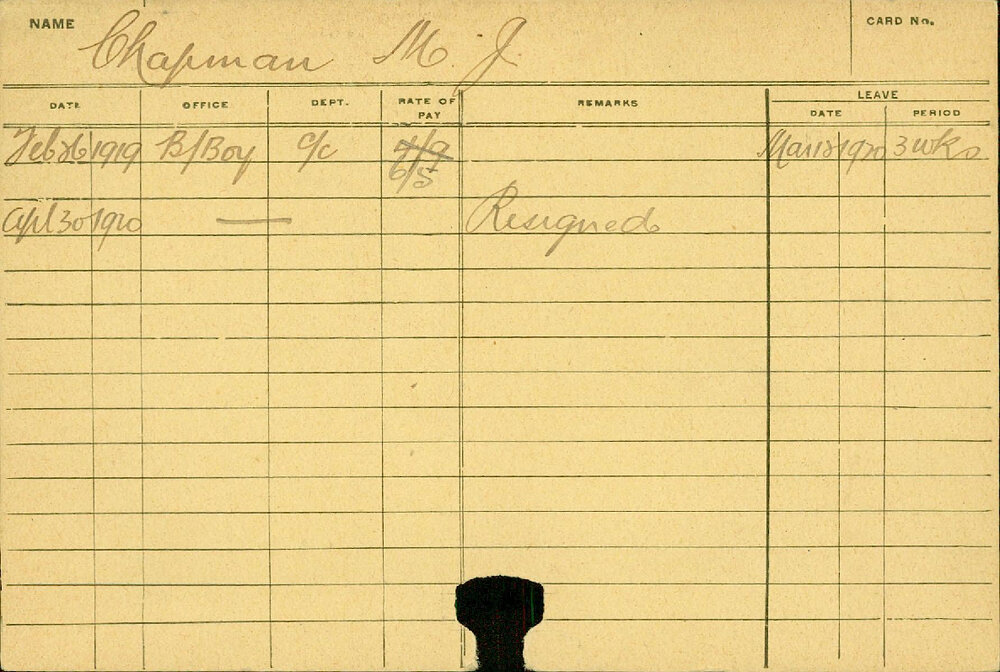 NAME Chapman M. J. CARD No.
DATE OFFICE DEPT. RATE OF PAY REMARKS LEAVE DATE PERIOD
Feb 26 1919 B/Boy O/C 4/9 Mar 12 1920 3 wks
6/5
Apl 30 1920 — Resigned